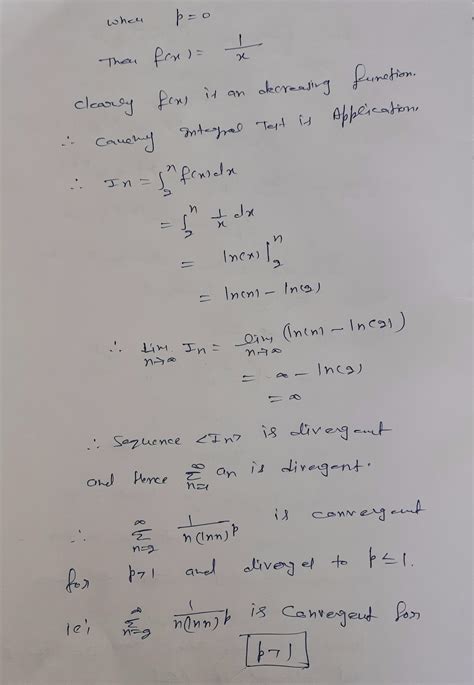 when p=0
Then f(x) = 1/x
Clearly f(x) is an decreasing function.
∴ Cauchy Integral Test is Application.
∴ In = ∫₂ⁿ f(x)dx
= ∫₂ⁿ 1/x dx
= ln(x) |₂ⁿ
= ln(n) – ln(2)
∴ lim n→∞ In = lim n→∞ (ln(n) – ln(2))
= ∞ – ln(2)
= ∞
∴ Sequence <In> is divergent
and Hence ∞ Σ n=1 an is divergent.
∴ ∞ Σ n=2 1/n(lnn)^p is convergent
for p>1 and diverges to p≤1.
ie; ∞ Σ n=2 1/n(lnn)^p is Convergent for
p>1